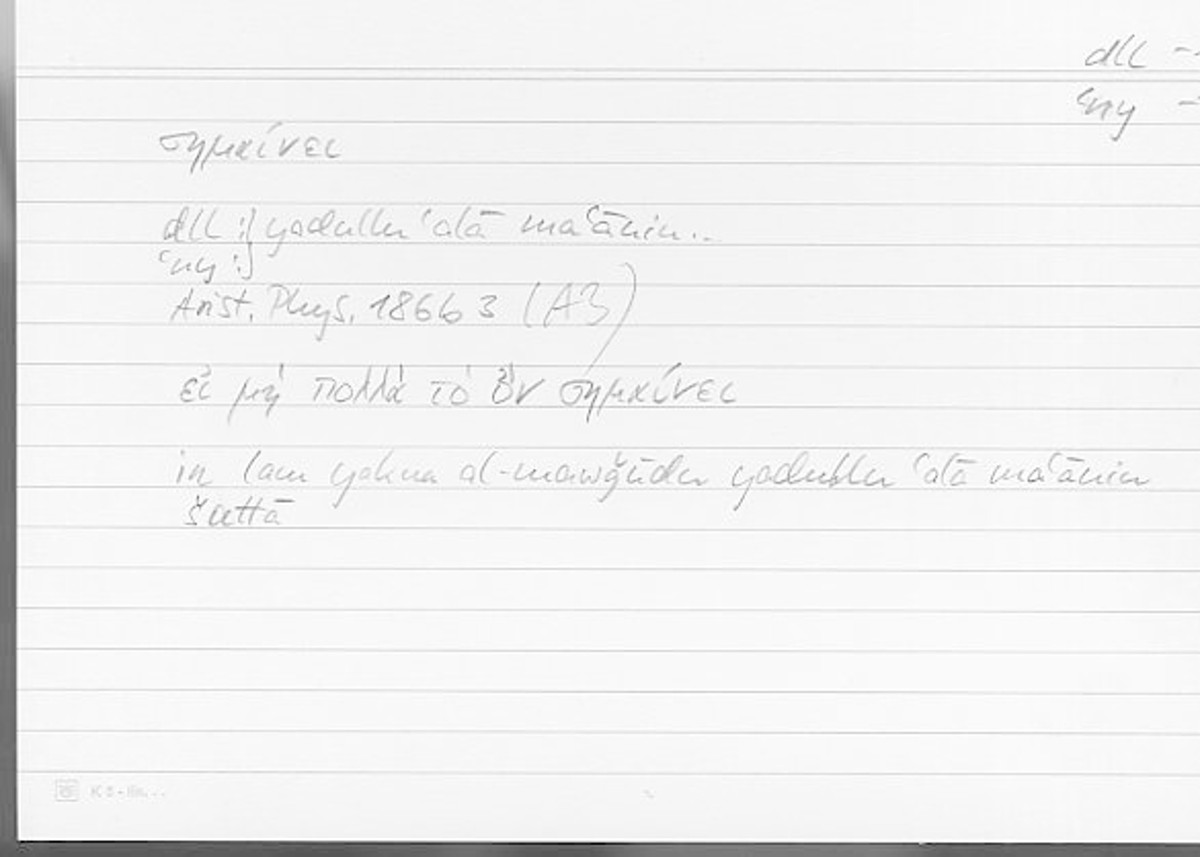 dll -
ʿny -
σημαίνει
dll :} yadullu ʿalā maʿānin..
ʿny :}
Arist. Phys. 186b 3 (A3)
εἰ μὴ πολλὰ τὸ ὂν σημαίνει
in lam yakun al-mawǧūdu yadullu ʿalā maʿānin
šattā